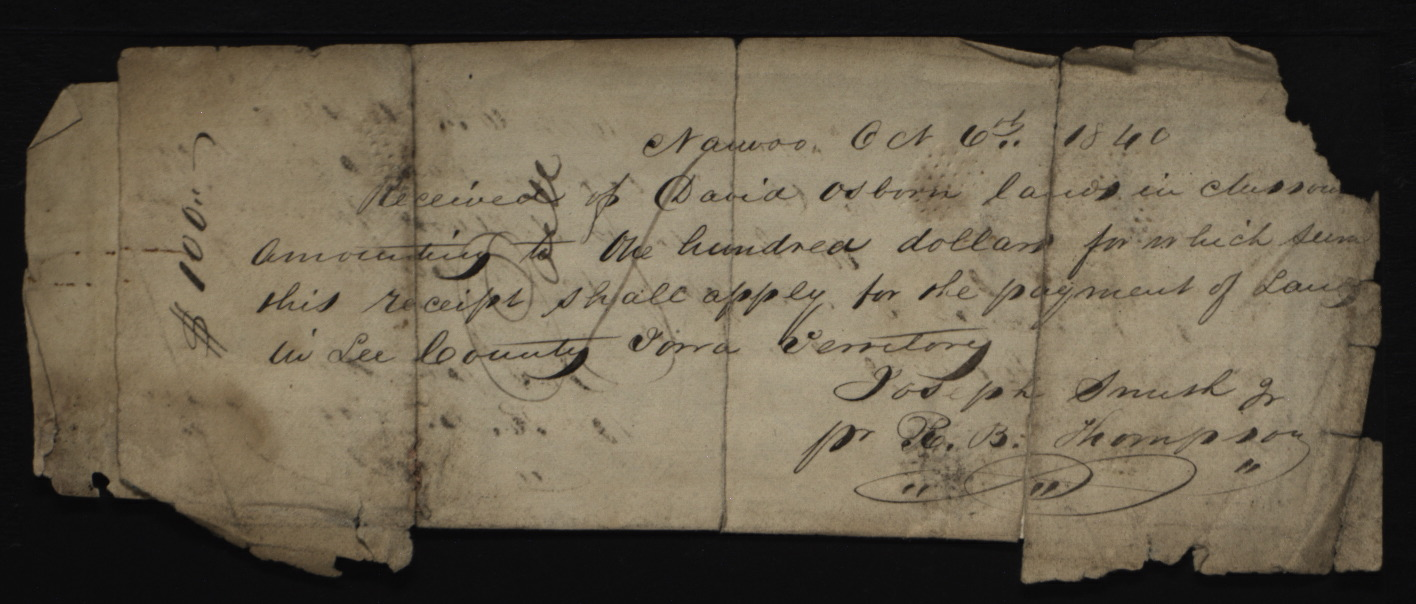 Nauvoo. Oct 6th 1840
Received of David Osborn lands in Missou
amounting to One hundred dollars for which sum
this receipt shall apply for the payment of Land
in Lee County Iowa Territory
Joseph Smith Jr
pr R. B. Thompson
$100..